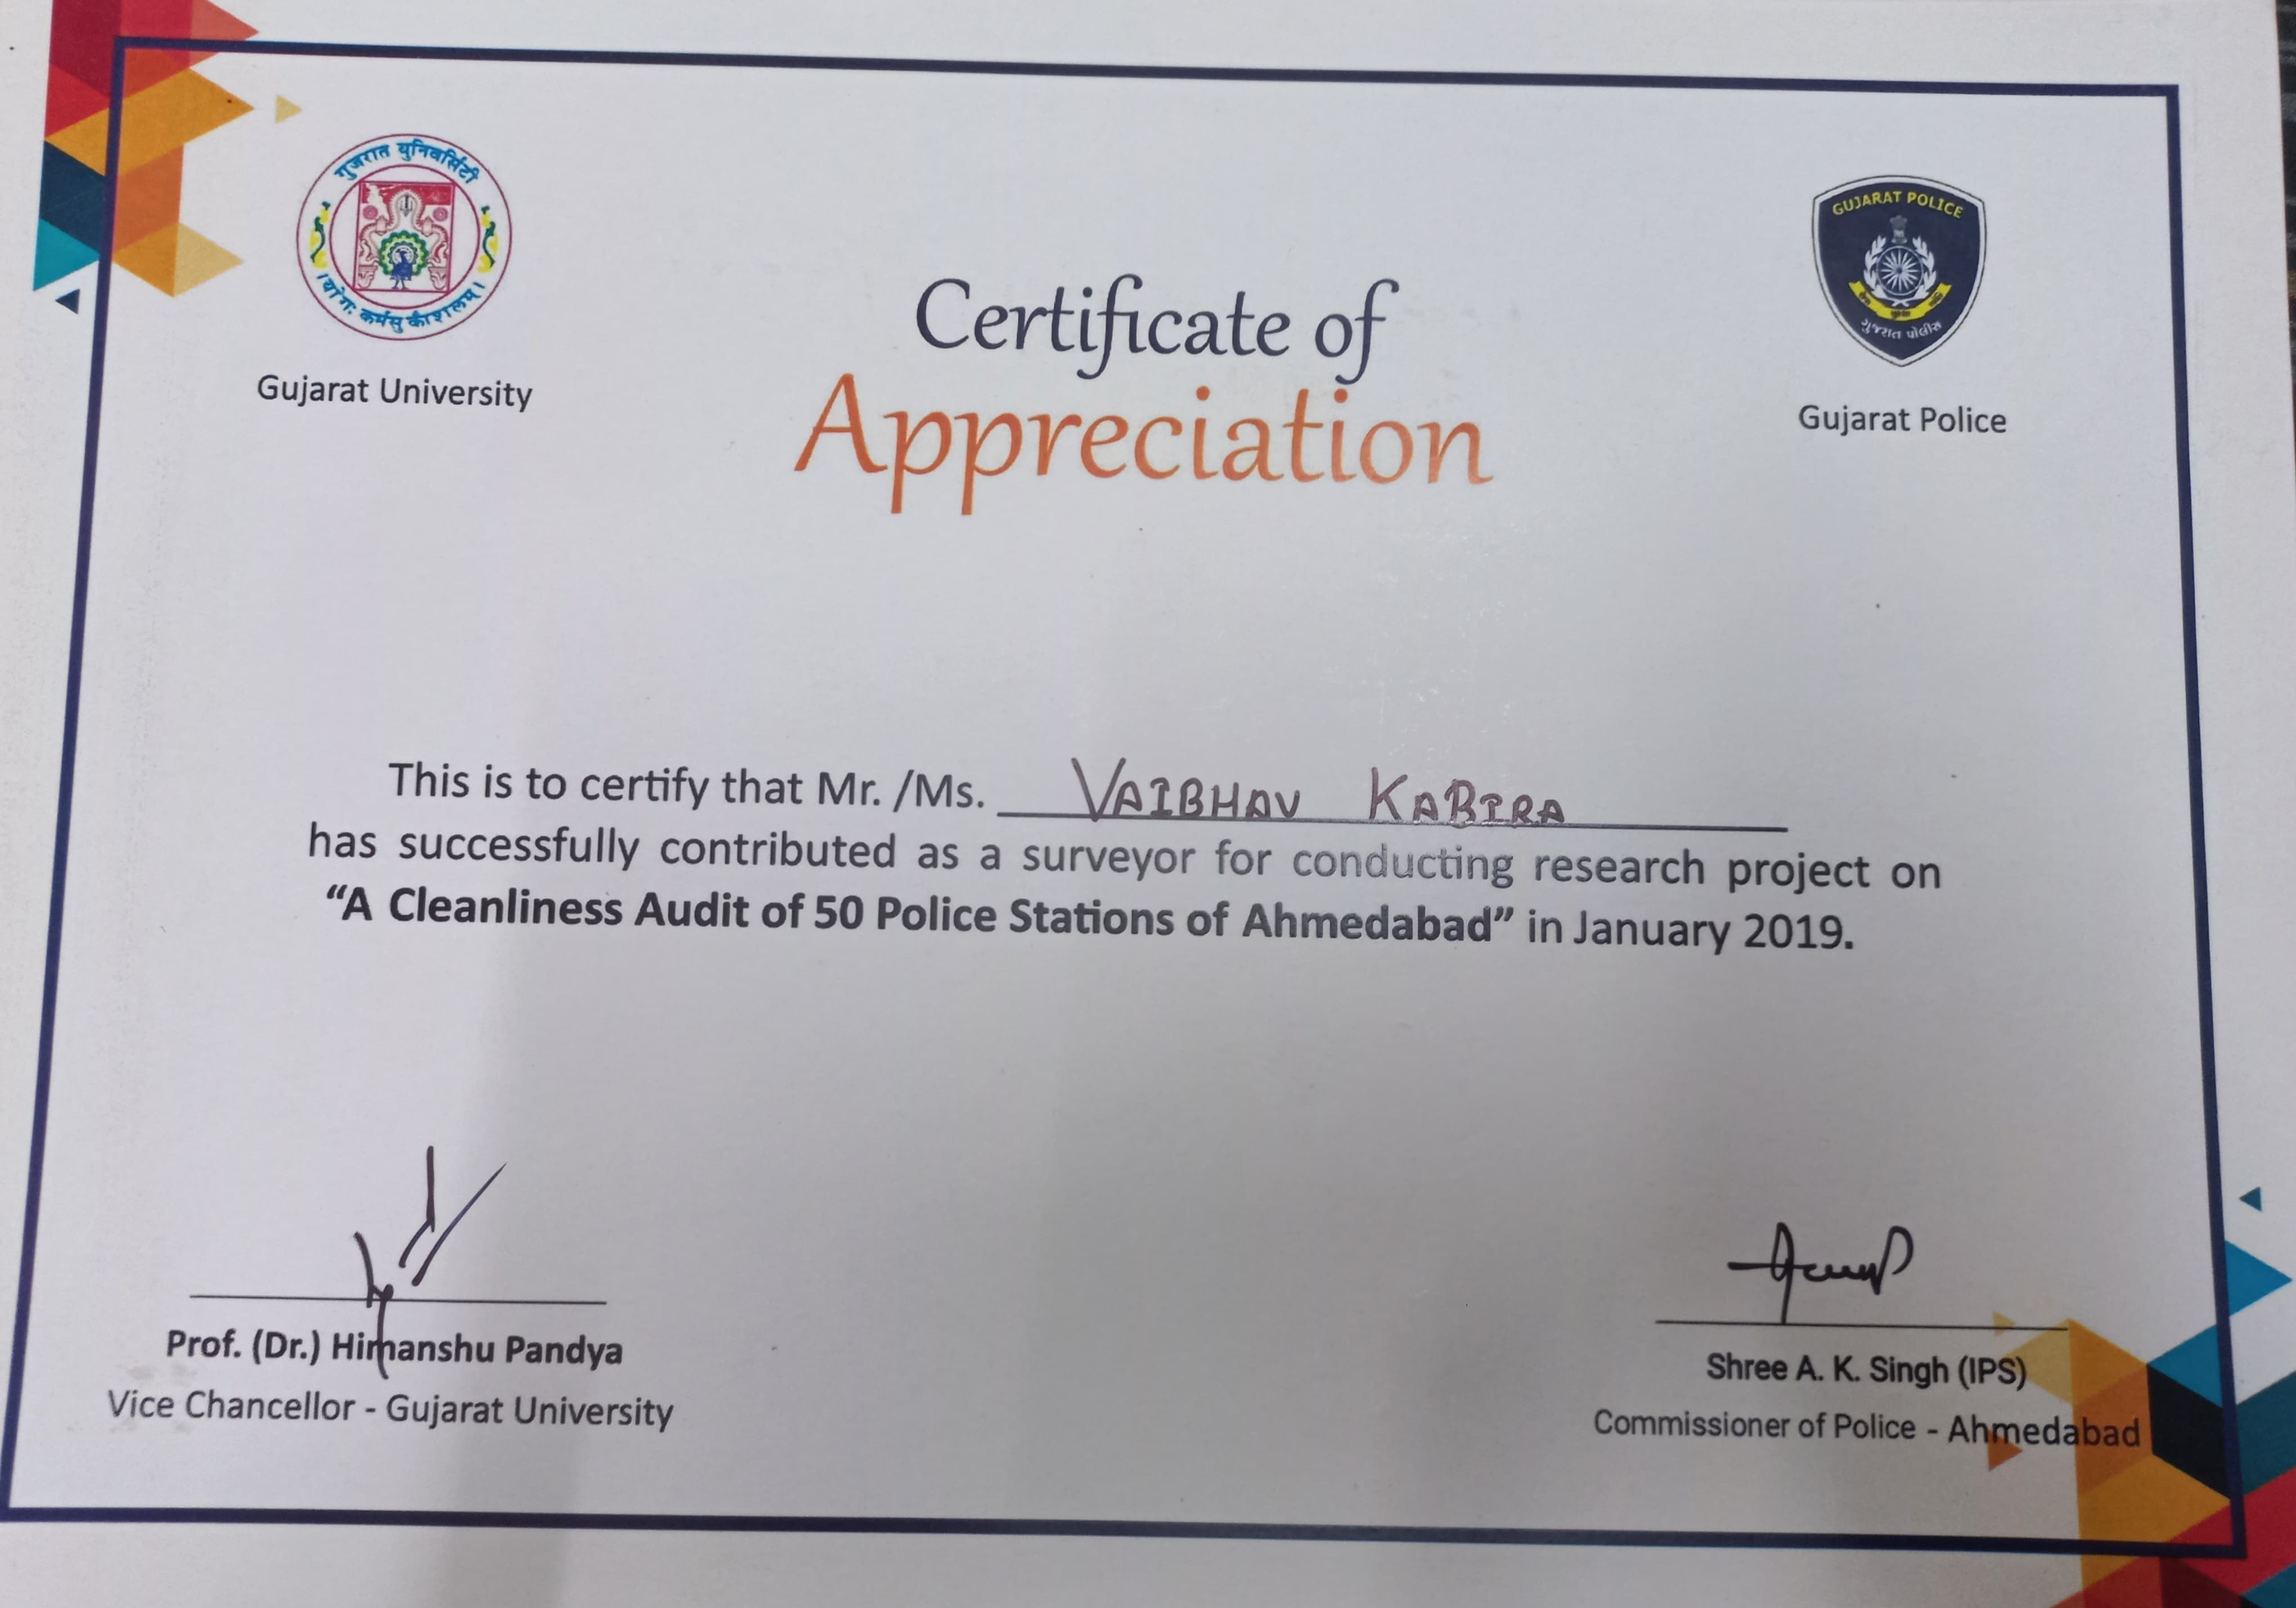 गुजरात युनिवर्सिटी
। योगः कर्मसु कौशलम् ।
Gujarat University
GUJARAT POLICE
ગુજરાત પોલીસ
Gujarat Police
Certificate of
Appreciation
This is to certify that Mr. /Ms. VAIBHAV KABIRA
has successfully contributed as a surveyor for conducting research project on
“A Cleanliness Audit of 50 Police Stations of Ahmedabad” in January 2019.
Prof. (Dr.) Himanshu Pandya
Vice Chancellor - Gujarat University
Shree A. K. Singh (IPS)
Commissioner of Police - Ahmedabad